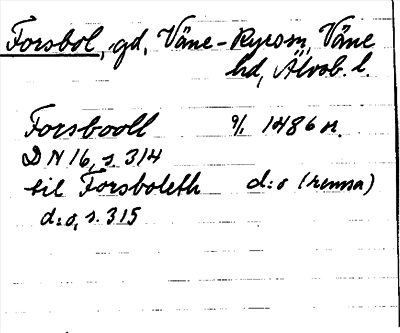 Forsbol, gd, Väne-Ryrs sn, Väne
hd, Älvsb. l.
Forsbooll % 1486 n.
DN 16, s. 314
til Forsboleth d:o (samma)
d:o, s. 315